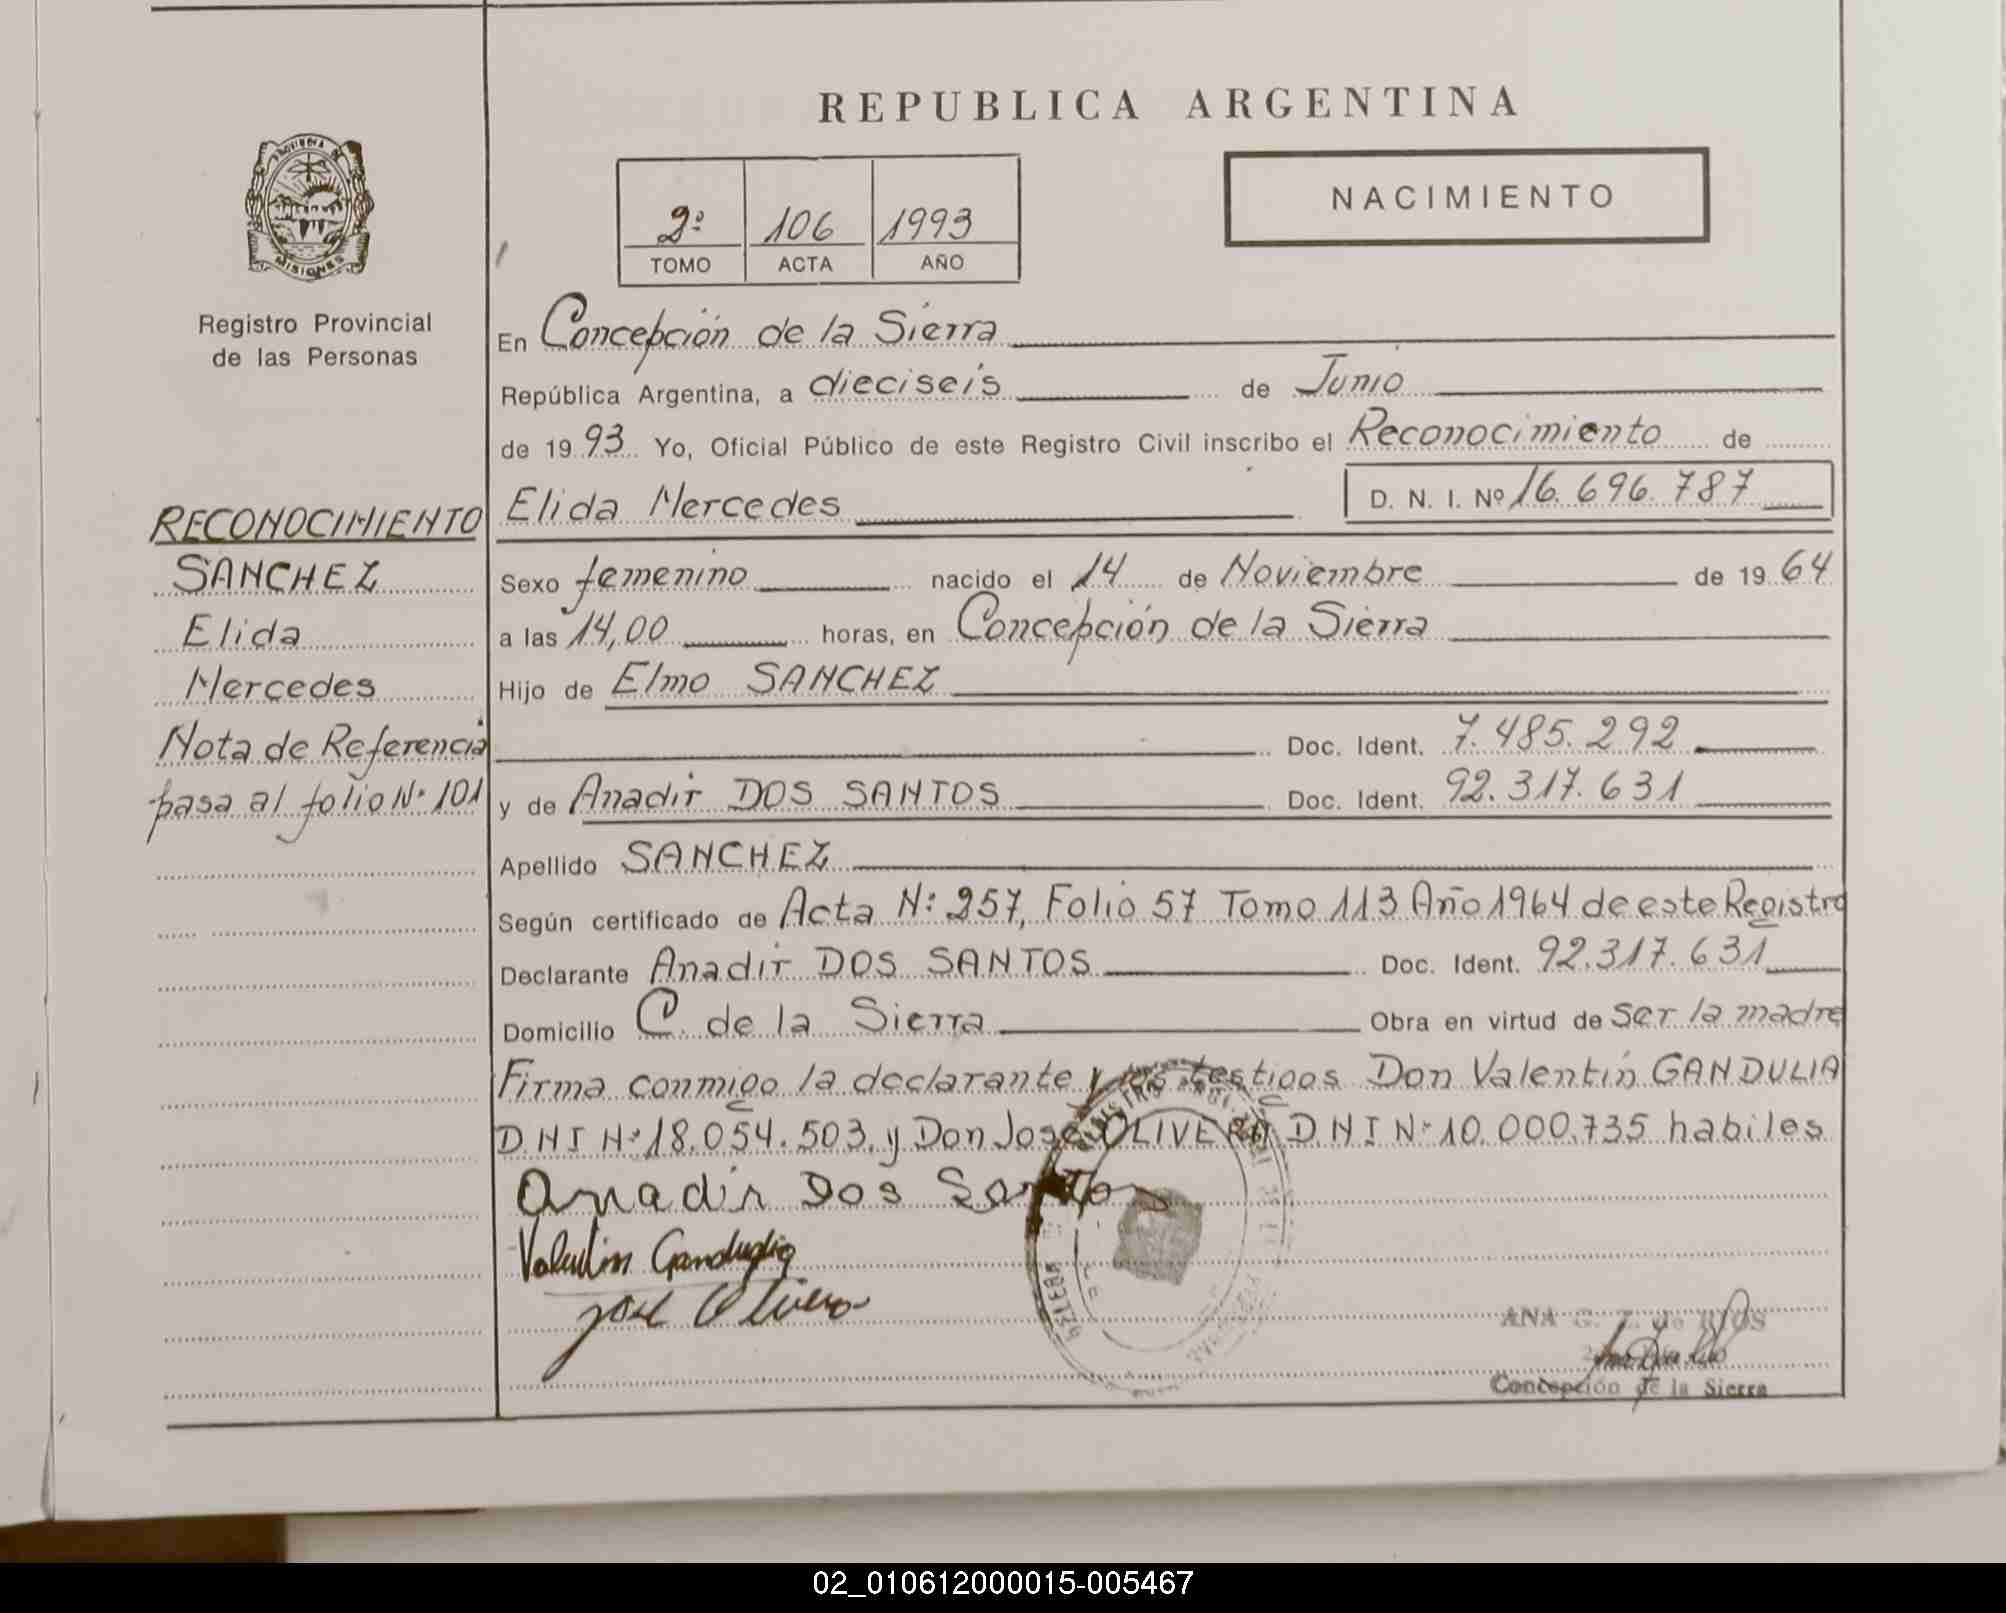 REPUBLICA ARGENTINA
PROVINCIA DE
MISIONES
Registro Provincial
de las Personas
2º 106 1993
TOMO ACTA AÑO
NACIMIENTO
En Concepción de la Sierra
República Argentina, a dieciseis de Junio
de 1993 Yo, Oficial Público de este Registro Civil inscribo el Reconocimiento de
Elida Mercedes D. N. I. Nº 16.696.787
RECONOCIMIENTO
SANCHEZ
Elida
Mercedes
Nota de Referencia
pasa al folio Nº 101
Sexo femenino nacido el 14 de Noviembre de 1964
a las 14,00 horas, en Concepción de la Sierra
Hijo de Elmo SANCHEZ
Doc. Ident. 7.485.292
y de Anadir DOS SANTOS Doc. Ident. 92.317.631
Apellido SANCHEZ
Según certificado de Acta Nº 257, Folio 57 Tomo 113 Año 1964 de este Registro
Declarante Anadir DOS SANTOS Doc. Ident. 92.317.631
Domicilio C. de la Sierra Obra en virtud de ser la madre
Firma conmigo la declarante y los testigos Don Valentín GANDULIA
D.N.I Nº 18.054.503. y Don José OLIVERA D.N.I Nº 10.000.735 habiles
Anadir Dos Santos
Valentin Gandulia
José Olivera
ANA G. Z. de RIOS
Concepción de la Sierra
02_010612000015-005467